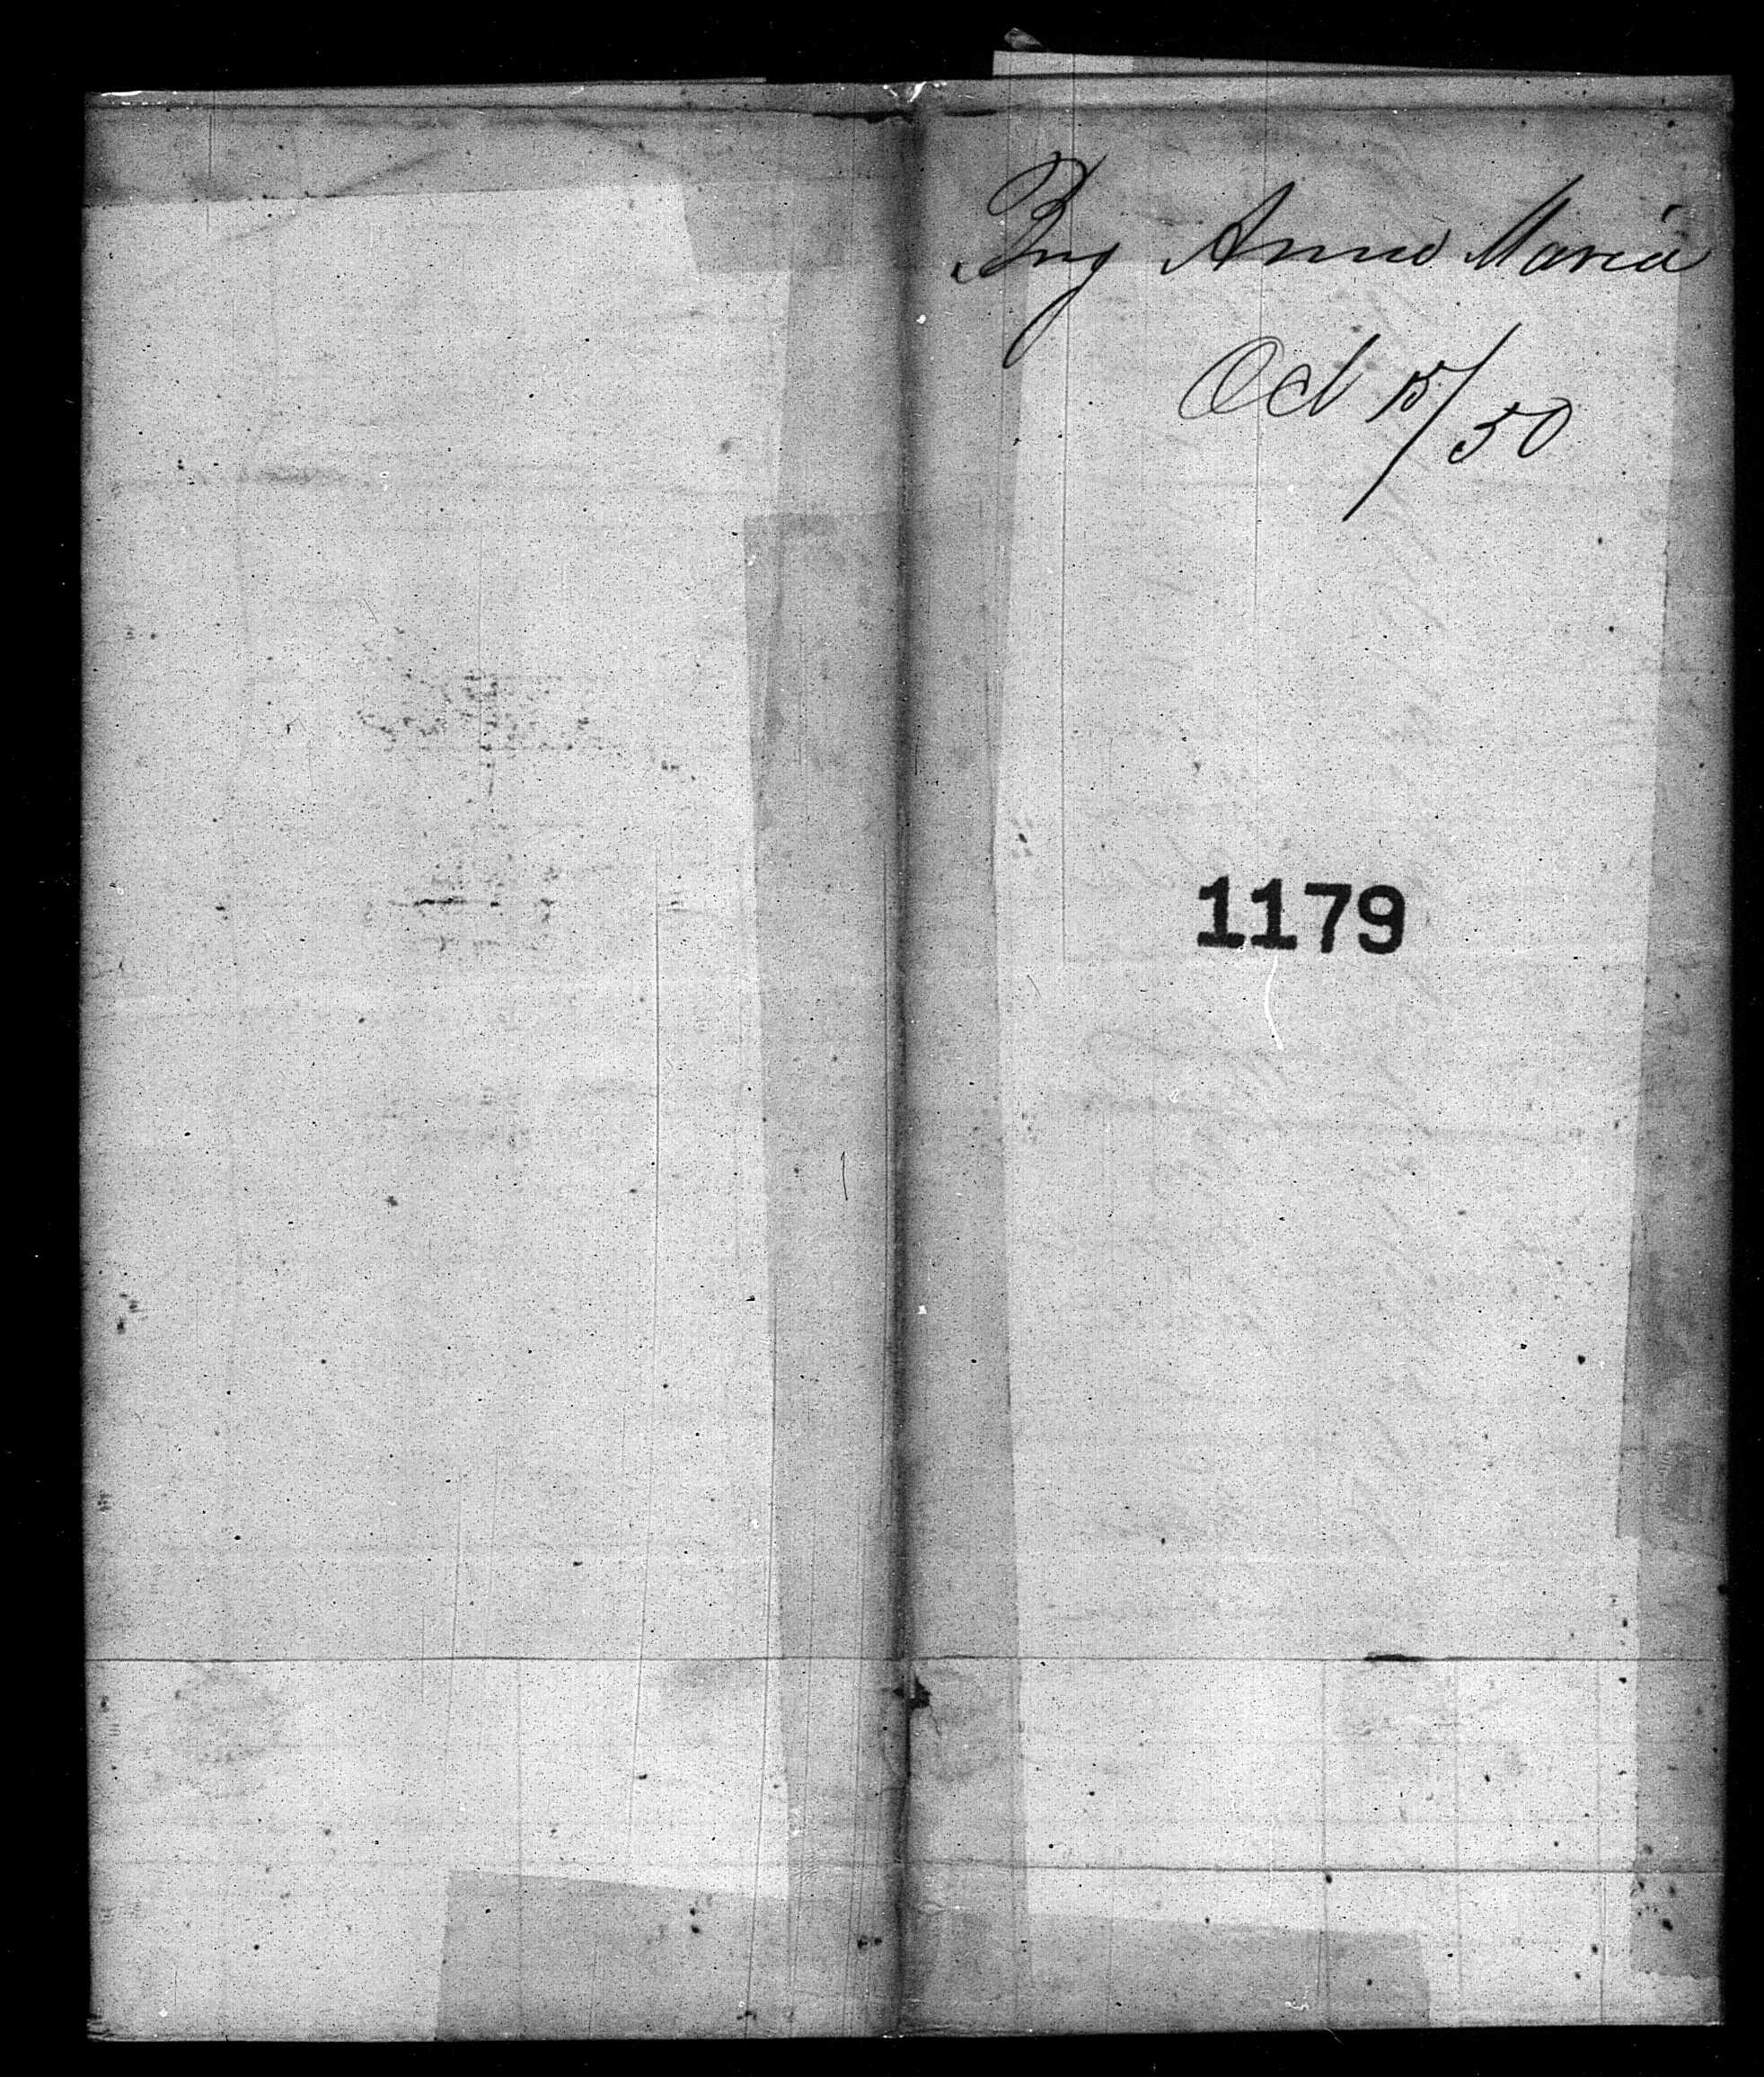 Brig Anna Maria
Oct 15/50
1179